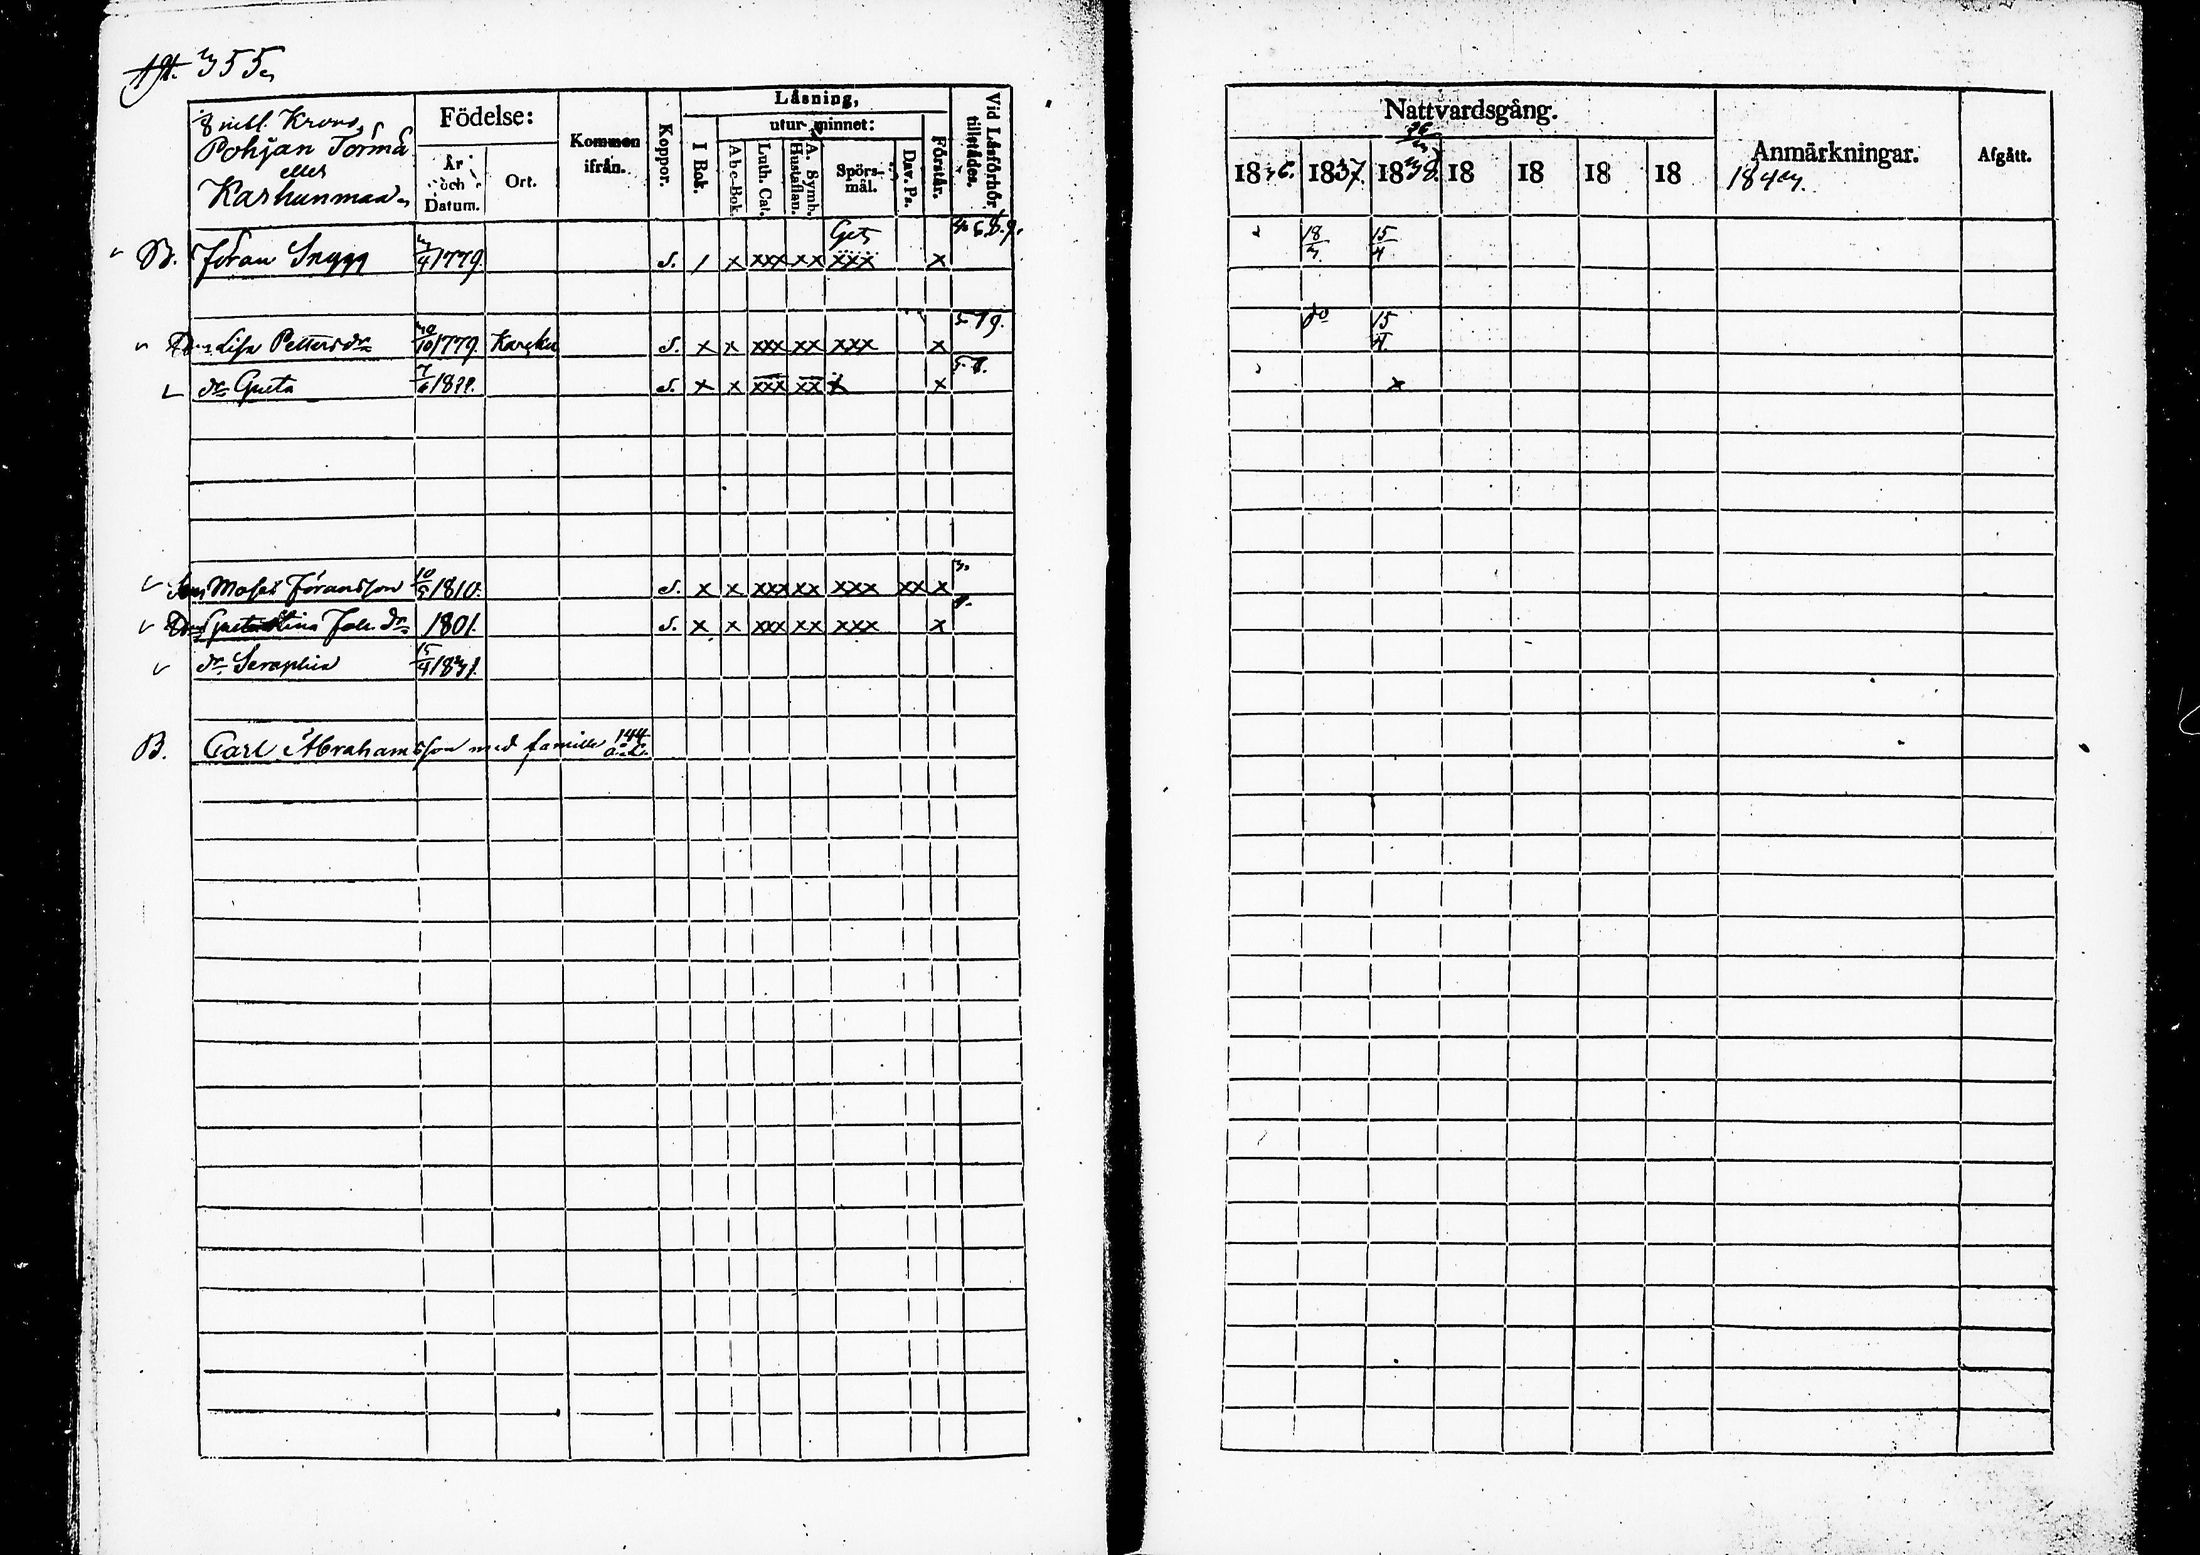 355.
Krono
Pohjan Torma
eller
Karhunmaa
Födelse:
År och Datum.
Ort.
Kommen ifrån.
Koppor.
Läsning,
I Bok.
utur minnet:
Abc-Bok.
Luth. Cat.
A. Symb. Hustaflan.
Spörsmål.
Dav. Ps.
Förstår.
Vid Läsförhör tillstädes.
B. Jöran Snygg 1779. s. / x xxx xx xxx x
Lisa Pettersdr 1779. s. x x xxx xx xxx x 579.
dr Greta s. x x xxx xx x x
Son Moses Jöransson 1810. s. x x xxx xx xxx xx x
1801. s. x x xxx xx xxx x
dr Seraphia 15/4
B. Carl Abrahamsson med familie 144
Nattvardsgång.
1836. 1837. 1838. 18 18 18 18
Anmärkningar.
Afgått.
18/3 15/4
do 15/4
x